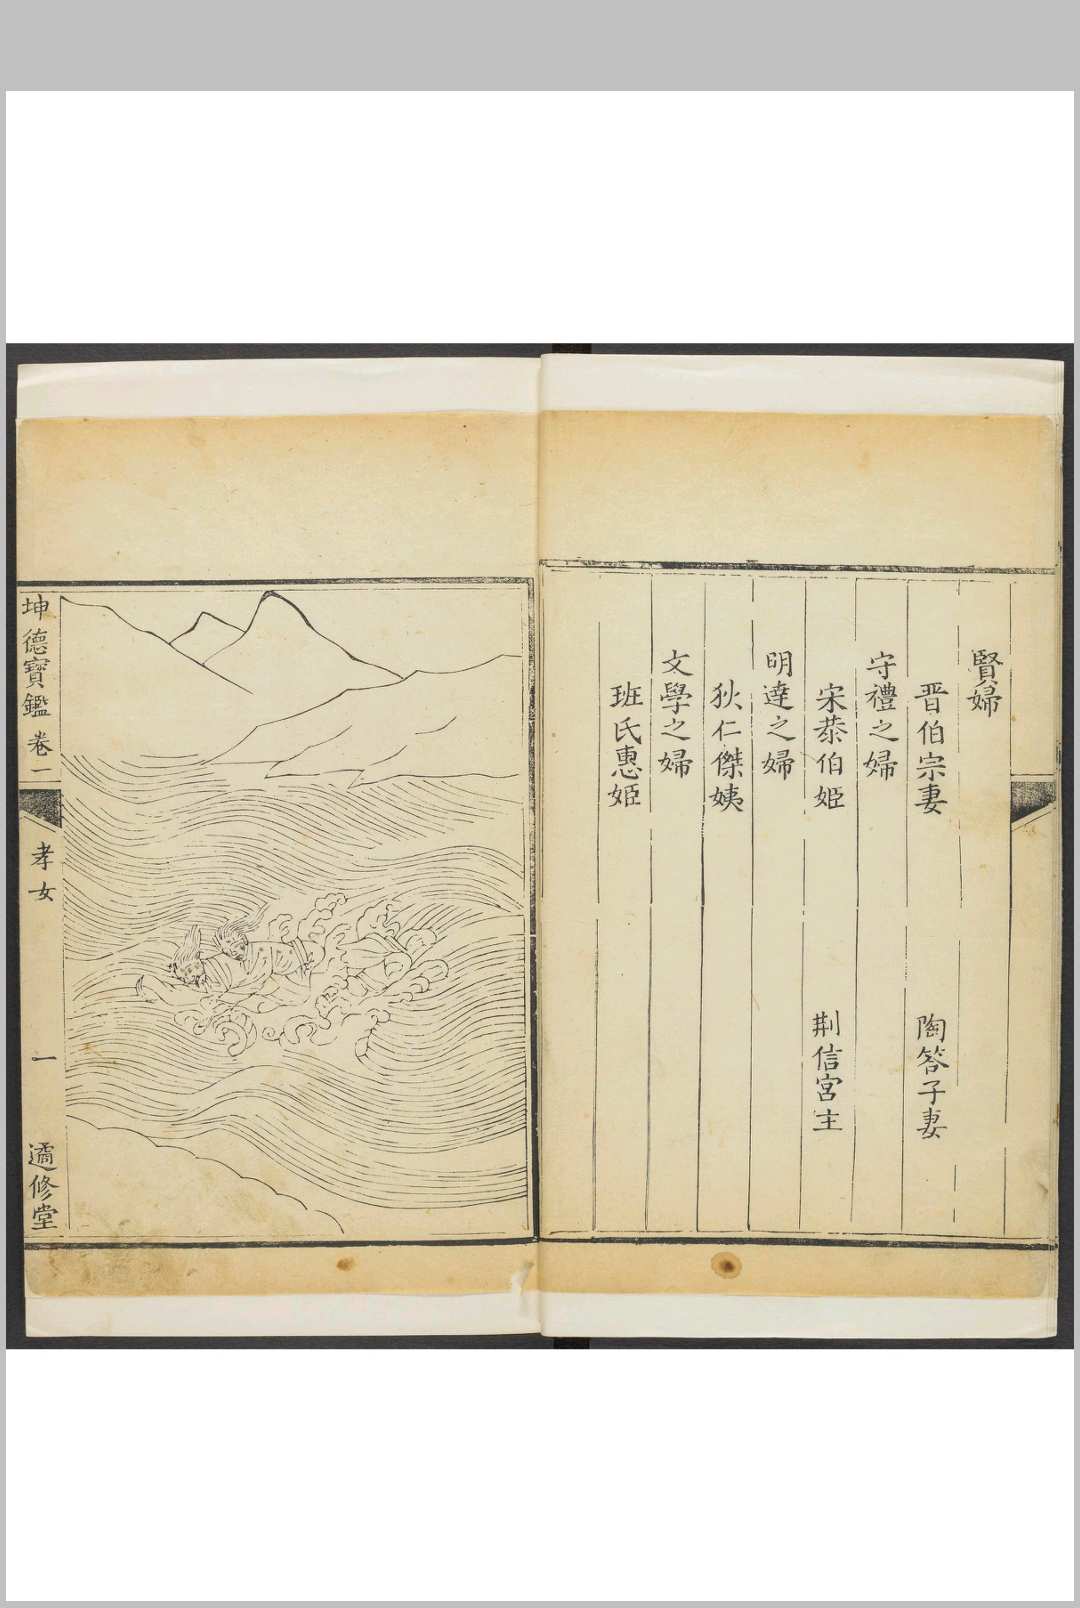 賢婦
晋伯宗妻　陶答子妻
守禮之婦
宋恭伯姬　荆信宮主
明達之婦
狄仁傑姨
文學之婦
班氏惠姬
坤德寶鑑 卷一 孝女 一 遹修堂